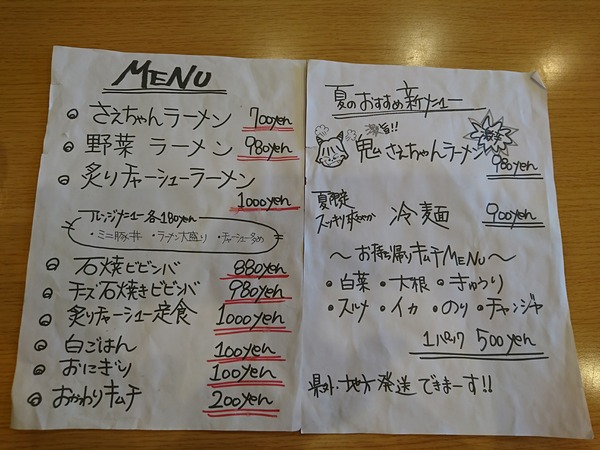 MENU
さえちゃんラーメン 700yen
野菜 ラーメン 980yen
炙りチャーシューラーメン
1000yen
アレンジメニュー各180yen
・ミニ豚丼 ・ラーメン大盛り ・チャーシュー多め
石焼ビビンバ 880yen
チーズ石焼きビビンバ 980yen
炙りチャーシュー定食 1000yen
白ごはん 100yen
おにぎり 100yen
おかわりキムチ 200yen
夏のおすすめ新メニュー
濃旨!!
鬼さえちゃんラーメン 激辛
980yen
夏限定
スッキリ爽やか 冷麺 900yen
〜お持ち帰りキムチMENU〜
・白菜 ・大根 ・きゅうり
・スルメ ・イカ ・のり ・チャンジャ
1パック 500yen
県外・地方発送できまーす!!